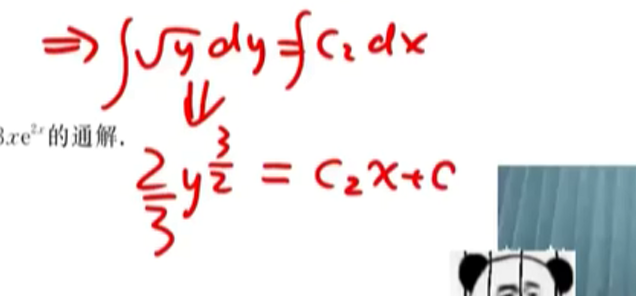 ⇒ ∫√y dy = ∫C₂ dx
⇓
3xe²ˣ的通解.
2/3 y^(3/2) = C₂x+C